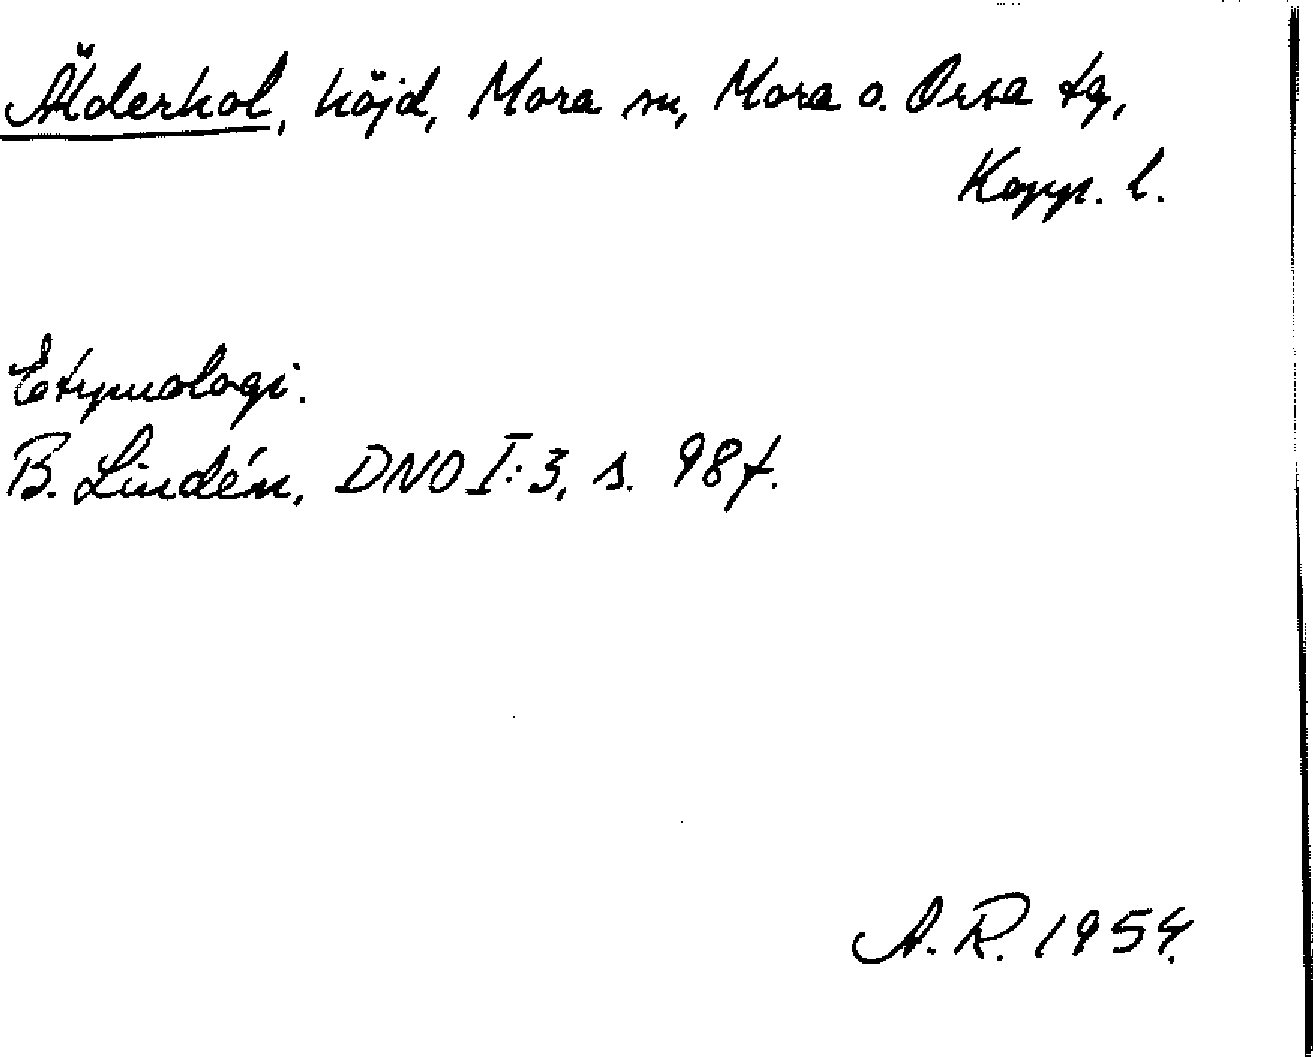 Älderhol, höjd, Mora sn, Mora o. Orsa tg,
Kopp. l.
Etymologi.
B. Lindén, DNO I:3, s. 98 f.
A. R. 1954.